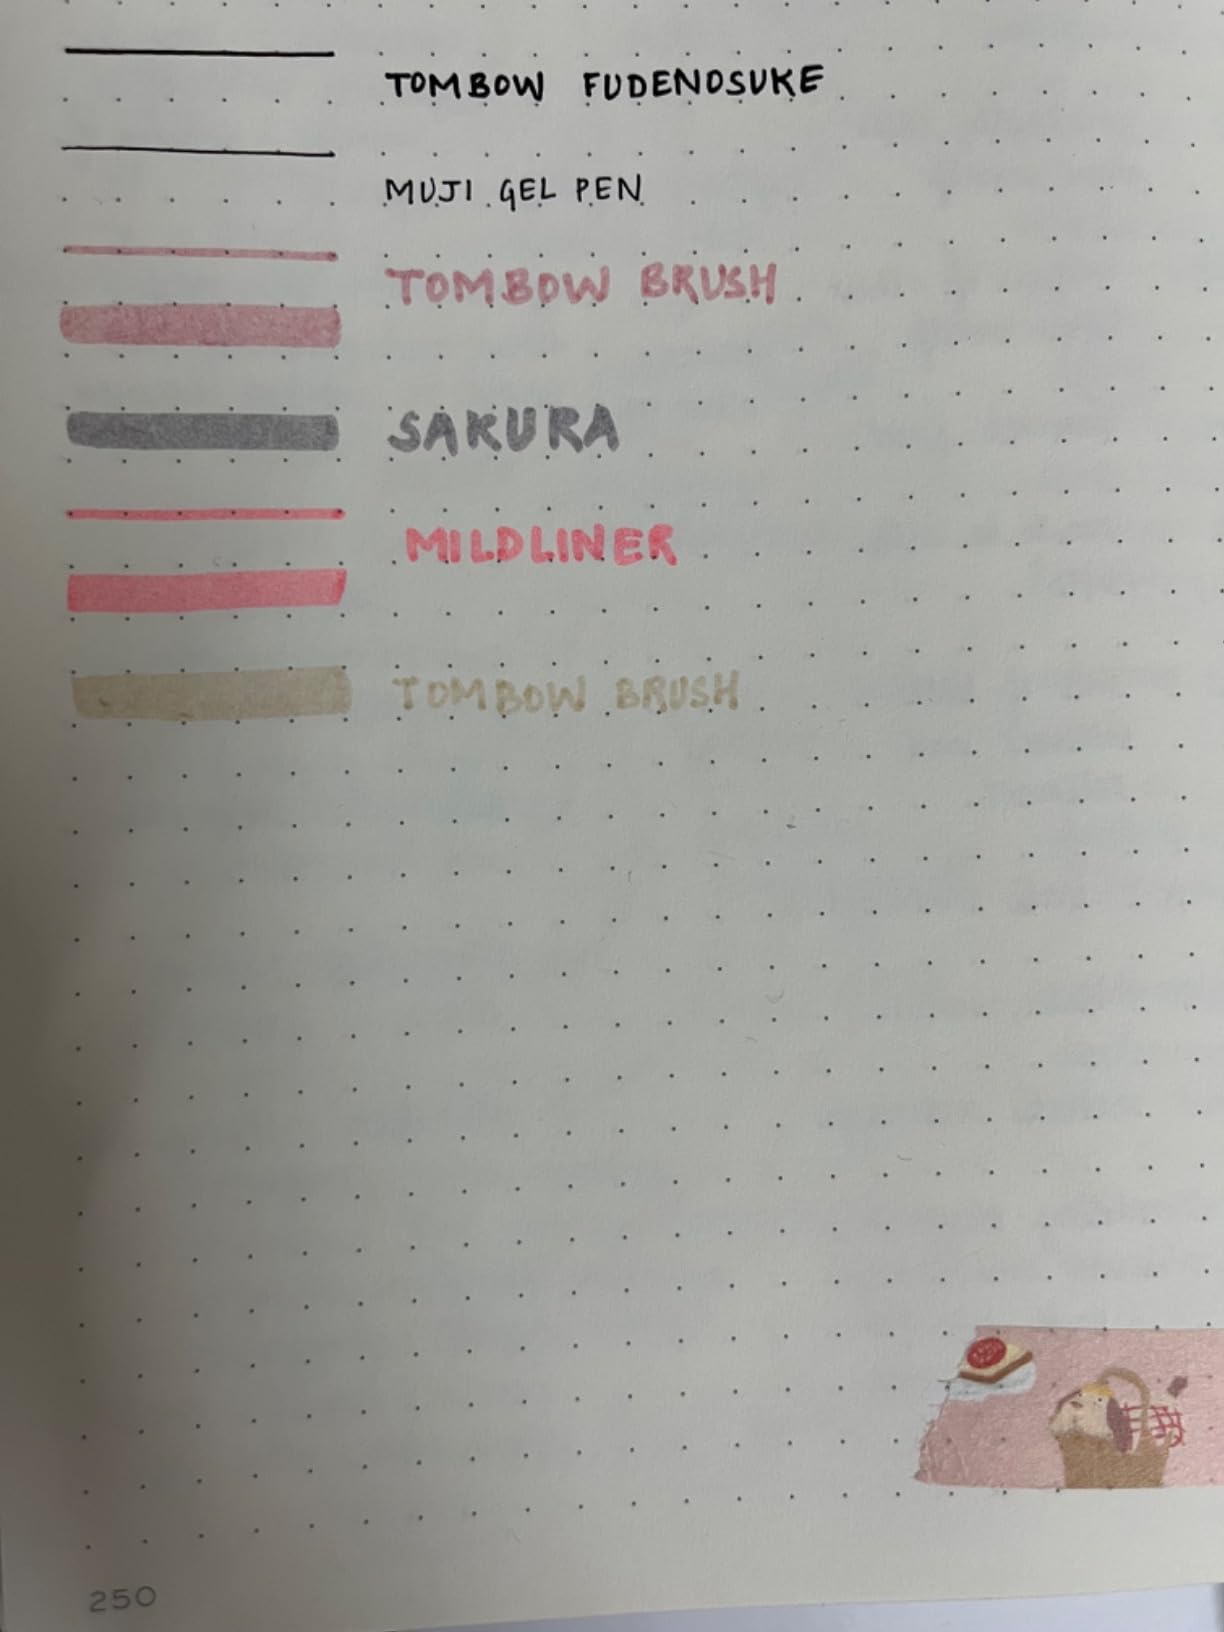 TOMBOW FUDENOSUKE
MUJI GEL PEN
TOMBOW BRUSH
SAKURA
MILDLINER
TOMBOW BRUSH
250